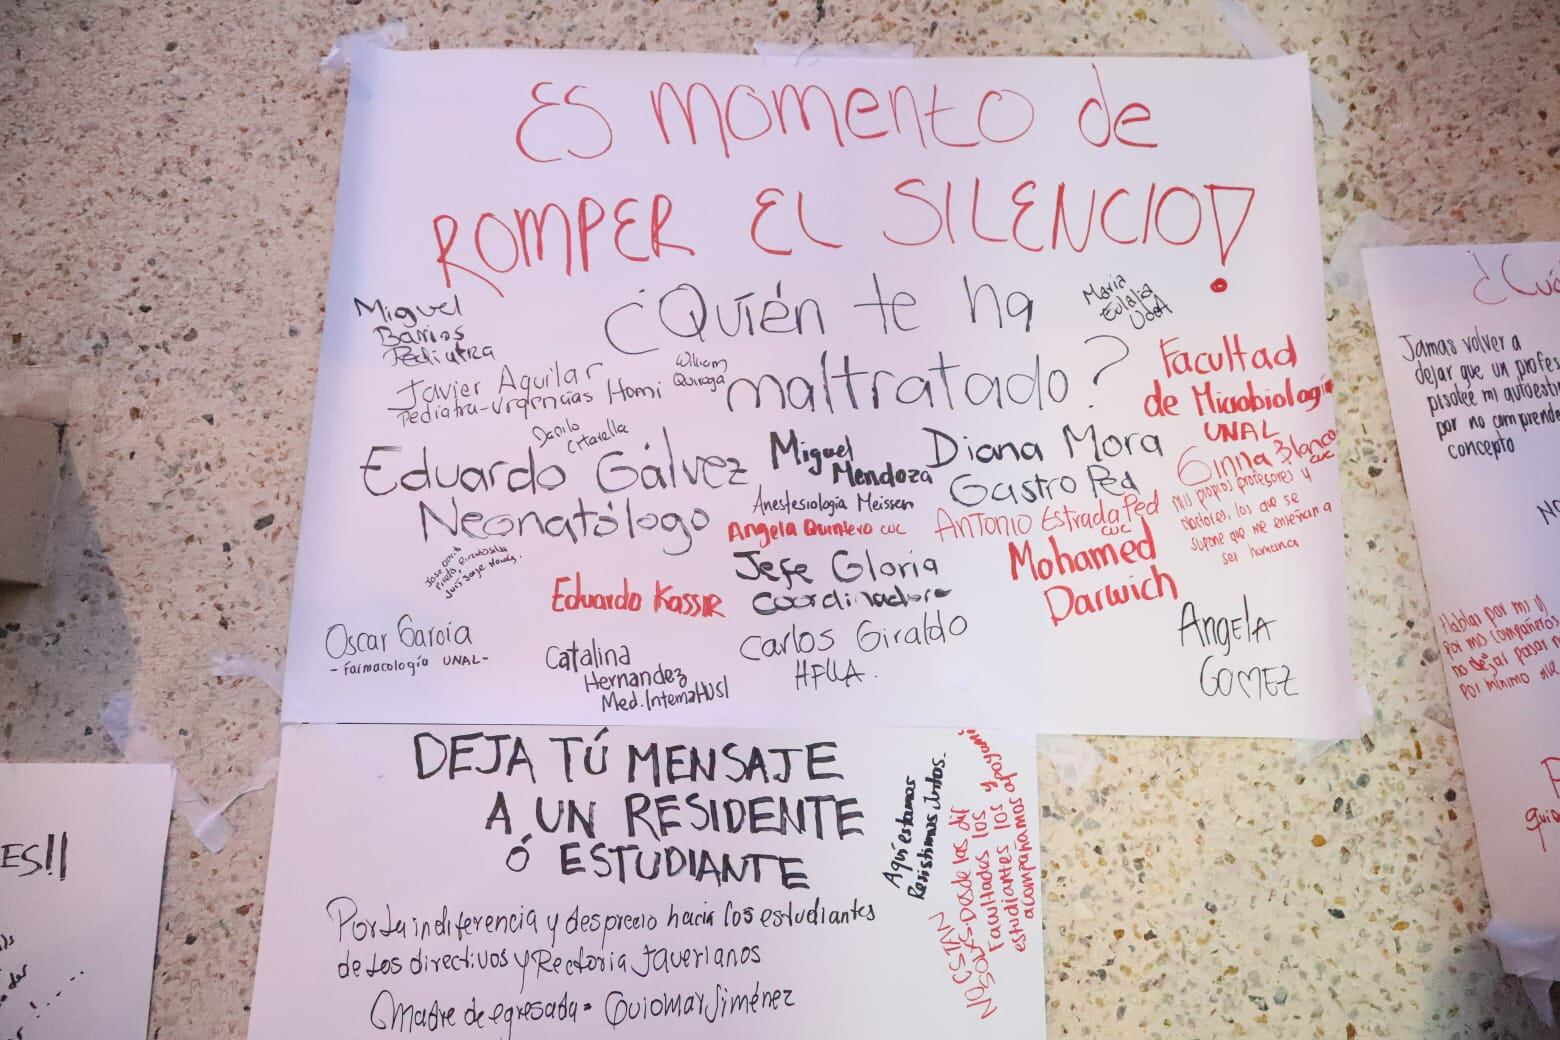 ES momento de
ROMPER EL SILENCIO!
¿Quién te ha
maltratado?
Miguel
Barrios
Pediatra
Maria
Eulalia
UdeA
Javier Aguilar
Pediatra-Urgencias Homi
William
Quiroga
Facultad
de Microbiología
UNAL
Danilo
Eduardo Gálvez
Neonatólogo
Miguel
Mendoza
Anestesiología Meissen
Diana Mora
Gastro Ped
Ginna Blanco
CUC
Mis propios profesores y
doctores, los que se
supone que me enseñan a
ser humana
Angela Quintero CUC
Antonio Estrada Ped
CUC
Mohamed
Darwich
Jefe Gloria
Coordinadora
Eduardo Kassir
Oscar García
-Farmacología UNAL-
Catalina
Hernandez
Med. Interna HUSI
Carlos Giraldo
Angela
GOMEZ
DEJA TÚ MENSAJE
A UN RESIDENTE
Ó ESTUDIANTE
Por la indiferencia y desprecio hacia los estudiantes
de los directivos y Rectoria Javerianos
Madre de egresada- Guiomar Jiménez
Aquí estamos
Resistimos Juntos.
NO ESTAN
SOLXS. Desde las dif
Facultades los y
estudiantes los apoyamos
acompañamos
¿Cuá
Jamas volver a
dejar que un profes
pisotee mi autoesti
por no comprende
concepto
Hablar por mi y
Por mis compañeros
no dejar pasar
Por minimo que
ES!!